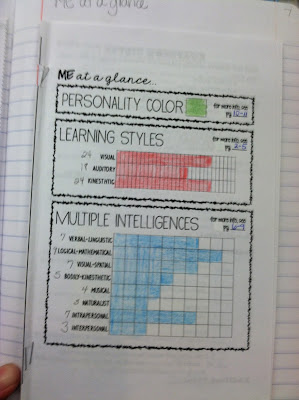 ME at a glance
ME at a glance...
PERSONALITY COLOR
for more info, see
pg. 10-11
LEARNING STYLES
for more info, see
pg.
24 VISUAL
AUDITORY
24 KINESTHETIC
MULTIPLE INTELLIGENCES
for more info, see
pg.
7 VERBAL-LINGUISTIC
LOGICAL-MATHEMATICAL
7 VISUAL-SPATIAL
5 BODILY-KINESTHETIC
4 MUSICAL
3 NATURALIST
7 INTRAPERSONAL
3 INTERPERSONAL